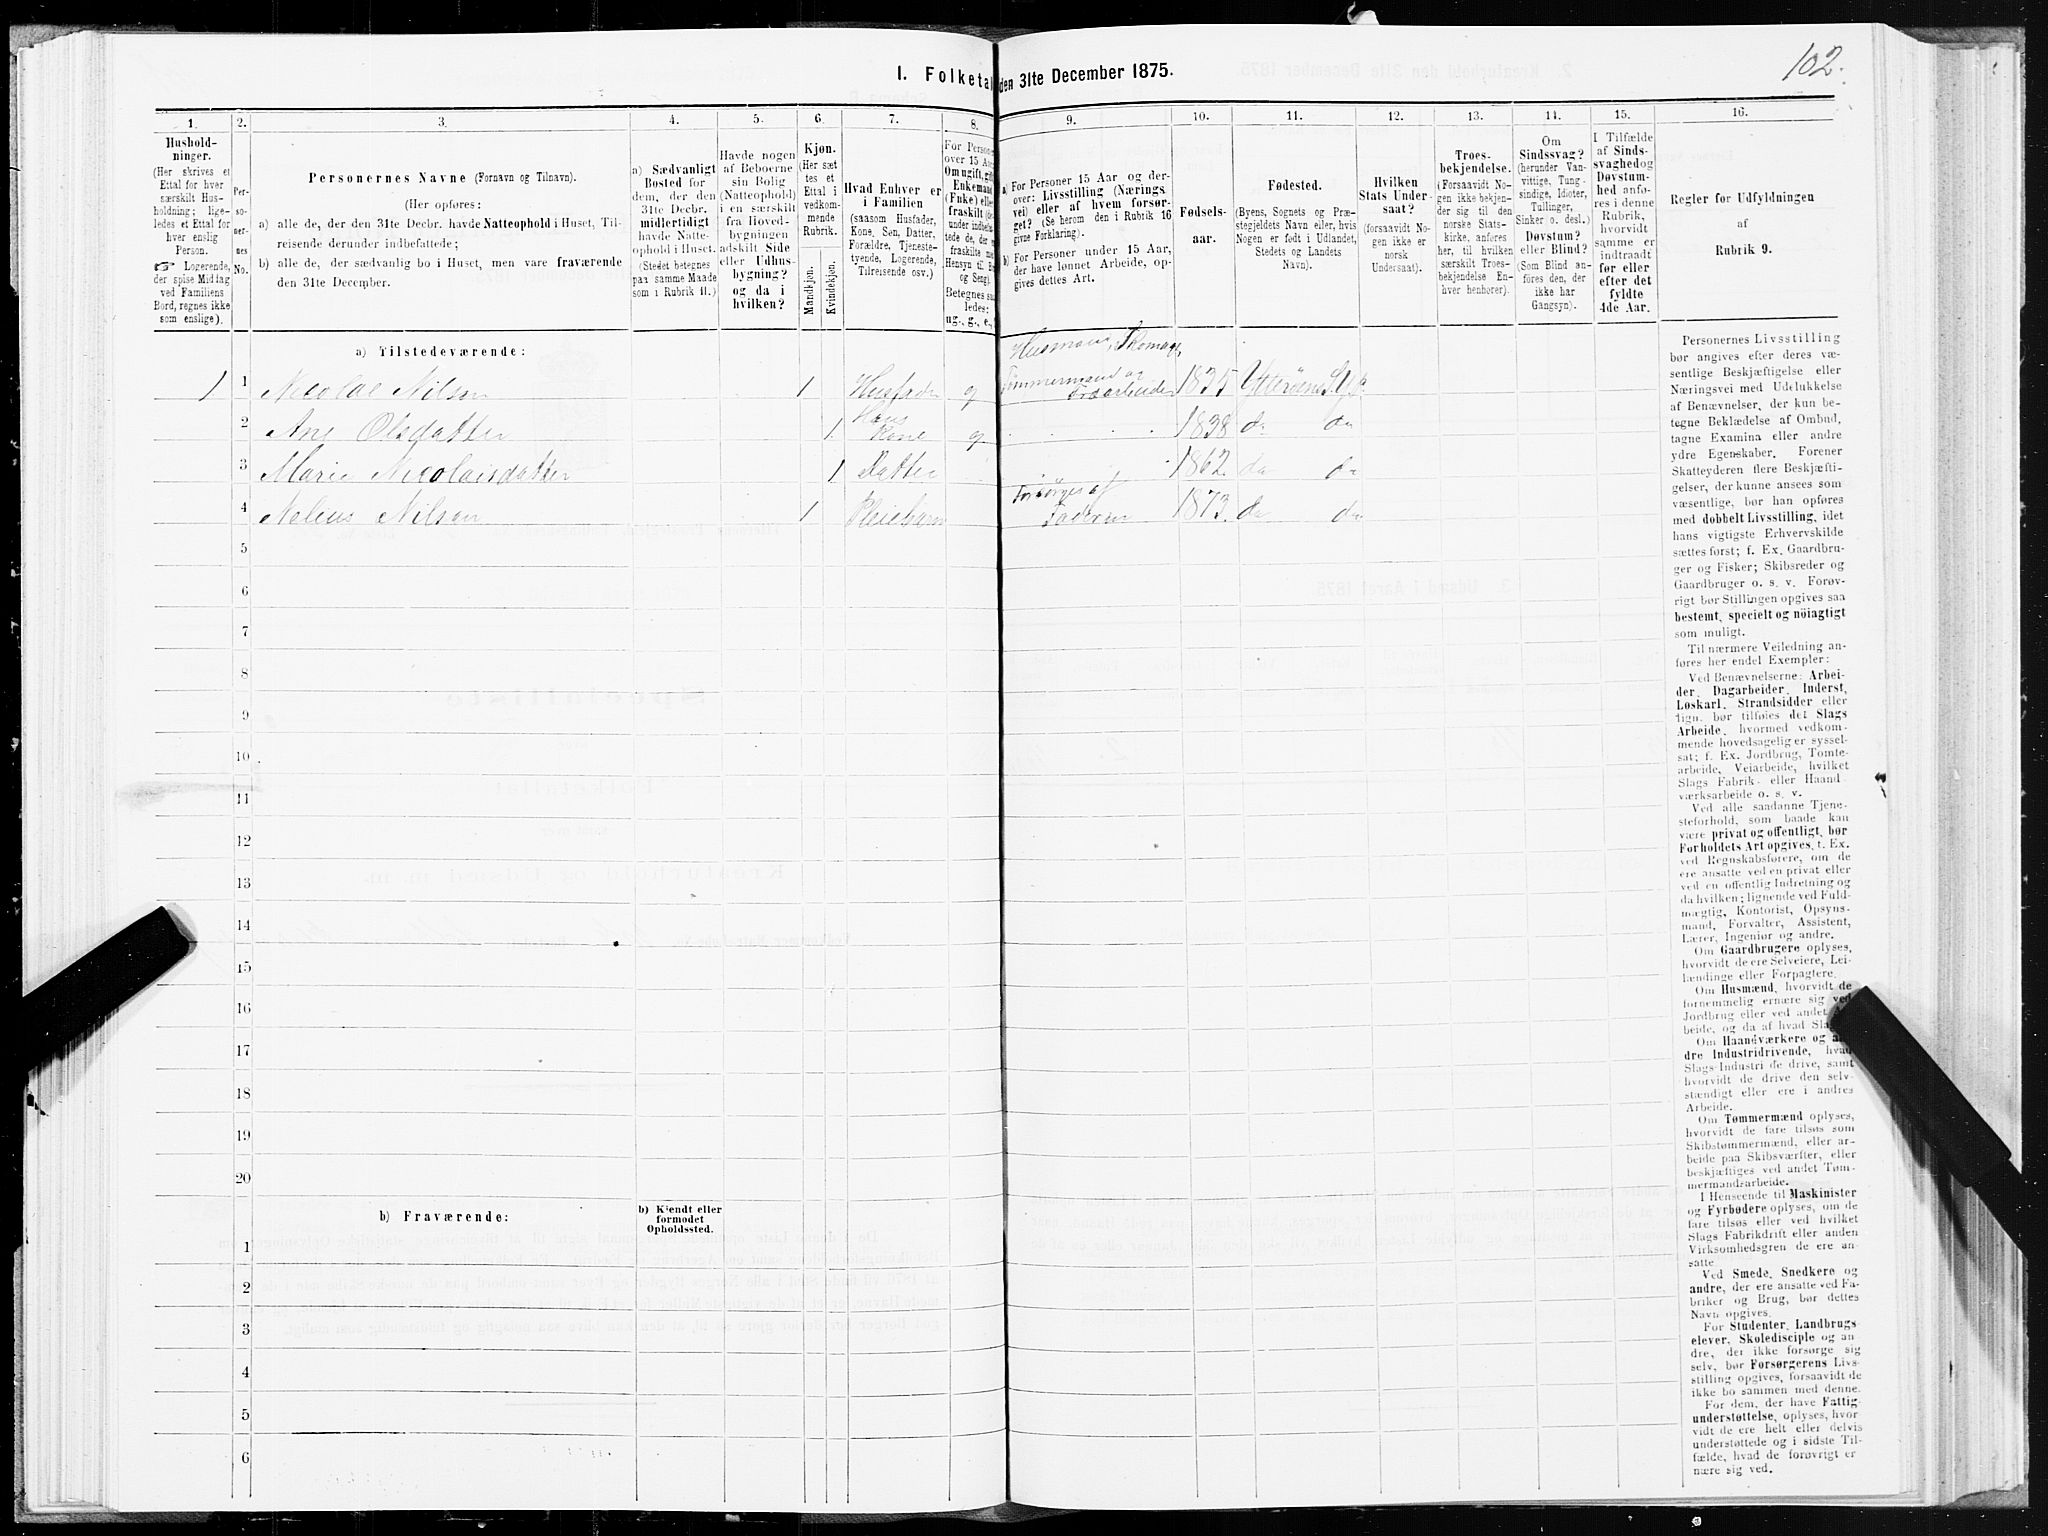 102.
I. Folketal den 31te December 1875.
1.
2.
3.
4.
5.
6.
7.
8.
9.
10.
11.
12.
13.
14.
15.
16.
Hushold-
ninger.
(Her skrives et
Ettal for hver
særskilt Hus-
holdning; lige-
ledes et Ettal for
hver enslig
Person.
☞ Logerende,
der spise Middag
ved Familiens
Bord, regnes ikke
som enslige).
Per-
so-
ner-
nes
No.
Personernes Navne (Fornavn og Tilnavn).
(Her opføres:
a) alle de, der den 31te Decbr. havde Natteophold i Huset, Til-
reisende derunder indbefattede;
b) alle de, der sædvanlig bo i Huset, men vare fraværende
den 31te December.
a) Sædvanligt
Bosted for
dem, der den
31te Decbr.
midlertidigt
havde Natte-
ophold i Huset.
(Stedet betegnes
paa samme Maade
som i Rubrik 11.)
Havde nogen
af Beboerne
sin Bolig
(Natteophold)
i en særskilt
fra Hoved-
bygningen
adskilt Side
eller Udhus-
bygning?
og da i
hvilken?
Kjøn.
(Her sæt-
tes et
Ettal i
vedkom-
mende
Rubrik.
Mandkjøn.
Kvindekjøn.
Hvad Enhver er
i Familien
(saasom Husfader,
Kone, Søn, Datter,
Forældre, Tjeneste-
tyende, Logerende,
Tilreisende osv.)
For Personer
over 15 Aar:
Om ugift, gift,
Enkemand
(Enke) eller
fraskilt
Betegnes saa-
ledes:
ug., g., e.,
a) For Personer 15 Aar og der-
over: Livsstilling (Nærings-
vei) eller af hvem forsør-
get? (Se herom den i Rubrik 16
givne Forklaring.)
b) For Personer under 15 Aar,
der have lønnet Arbeide, op-
gives dettes Art.
Fødsels-
aar.
Fødested.
(Byens, Sognets og Præ-
stegjeldets Navn eller, hvis
Nogen er født i Udlandet,
Stedets og Landets
Navn).
Hvilken
Stats Under-
saat?
(forsaavidt No-
gen ikke er
norsk
Undersaat).
Troes-
bekjendelse.
(Forsaavidt No-
gen ikke bekjen-
der sig til den
norske Stats-
kirke, anføres
her, til hvilken
særskilt Troes-
bekjendelse En-
hver henhører).
Om
Sindssvag?
(herunder Van-
vittige, Tung-
sindige, Idioter,
Tullinger,
Sinker o. desl.)
Døvstum?
eller Blind?
(Som Blind an-
føres den, der
ikke har
Gangsyn).
I Tilfælde
af Sinds-
svaghed og
Døvstum-
hed anfø-
res i denne
Rubrik,
hvorvidt
samme er
indtraadt
før eller
efter det
fyldte
4de Aar.
Regler for Udfyldningen
af
Rubrik 9.
a) Tilstedeværende:
Husmand, Skomag,
1 1 Nicolai Nilsen 1 Husfader g Tømmermand og Træarbeider 1835 Ytterøens
2 Ane Olsdatter 1. Hans Kone g 1838 do do
3 Marie Nicolaisdatter 1 Datter 1862. do do
4 Neleus Nilsen 1 Pleiebarn Forsørges af Faderen 1873. do do
5
6
7
8
9
10
11
12
13
14
15
16
17
18
19
20
b) Fraværende:
b) Kjendt eller
formodet
Opholdssted.
1
2
3
4
5
6
Personernes Livsstilling
bør angives efter deres væ-
sentlige Beskjæftigelse eller
Næringsvei med Udelukkelse
af Benævnelser, der kun be-
tegne Beklædelse af Ombud,
tagne Examina eller andre
ydre Egenskaber. Forener
Skatteyderen flere Beskjæfti-
gelser, der kunne ansees som
væsentlige, bør han opføres
med dobbelt Livsstilling, idet
hans vigtigste Erhvervskilde
sættes først; f. Ex. Gaardbru-
ger og Fisker; Skibsreder og
Gaardbruger o. s. v. Forøv-
rigt bør Stillingen opgives saa
bestemt, specielt og nöiagtigt
som muligt.
Til nærmere Veiledning an-
føres her endel Exempler:
Ved Benævnelserne: Arbei-
der, Dagarbeider, Inderst,
Løskarl, Strandsidder eller
lign. bør tilføies det Slags
Arbeide, hvormed vedkom-
mende hovedsagelig er syssel-
sat; f. Ex. Jordbrug, Tomte-
arbeide, Veiarbeide, hvilket
Slags Fabrik- eller Haand-
værksarbeide o. s. v.
Ved alle saadanne Tjene-
steforhold, som baade kan
være privat og offentligt, bør
Forholdets Art opgives, f. Ex.
ved Regnskabsførere, om de
ere ansatte ved en privat eller
ved en offentlig Indretning og
da hvilken; lignende ved Fuld-
mægtig, Kontorist, Opsyns-
mand, Forvalter, Assistent,
Lærer, Ingeniør og andre.
Om Gaardbrugere oplyses,
hvorvidt de ere Selveiere, Lei-
lændinge eller Forpagtere.
Om Husmænd, hvorvidt de
fornemmelig ernære sig ved
Jordbrug eller ved andet Ar-
beide, og da af hvad Slags.
Om Haandværkere og an-
dre Industridrivende, hvad
Slags Industri de drive, samt
hvorvidt de drive den selv-
stændigt eller ere i andres
Arbeide.
Om Tømmermænd oplyses,
hvorvidt de fare tilsøs som
Skibstømmermænd, eller ar-
beide paa Skibsværfter, eller
beskjæftiges ved andet Tøm-
mermandsarbeide.
I Henseende til Maskinister
og Fyrbødere oplyses, om de
fare tilsøs eller ved hvilket
Slags Fabrikdrift eller anden
Virksomhedsgren de ere an-
satte.
Ved Smede, Snedkere og
andre, der ere ansatte ved Fa-
briker og Brug, bør dettes
Navn opgives.
For Studenter, Landbrugs-
elever, Skoledisciple og an-
dre, der ikke forsørge sig
selv, bør Forsørgerens Livs-
stilling opgives, forsaavidt de
ikke bo sammen med denne.
For dem, der have Fattig-
understøttelse, oplyses, hvor-
vidt de ere helt eller delvis
understøttede og i sidste Til-
fælde, hvad de forøvrigt er-
nære sig ved.